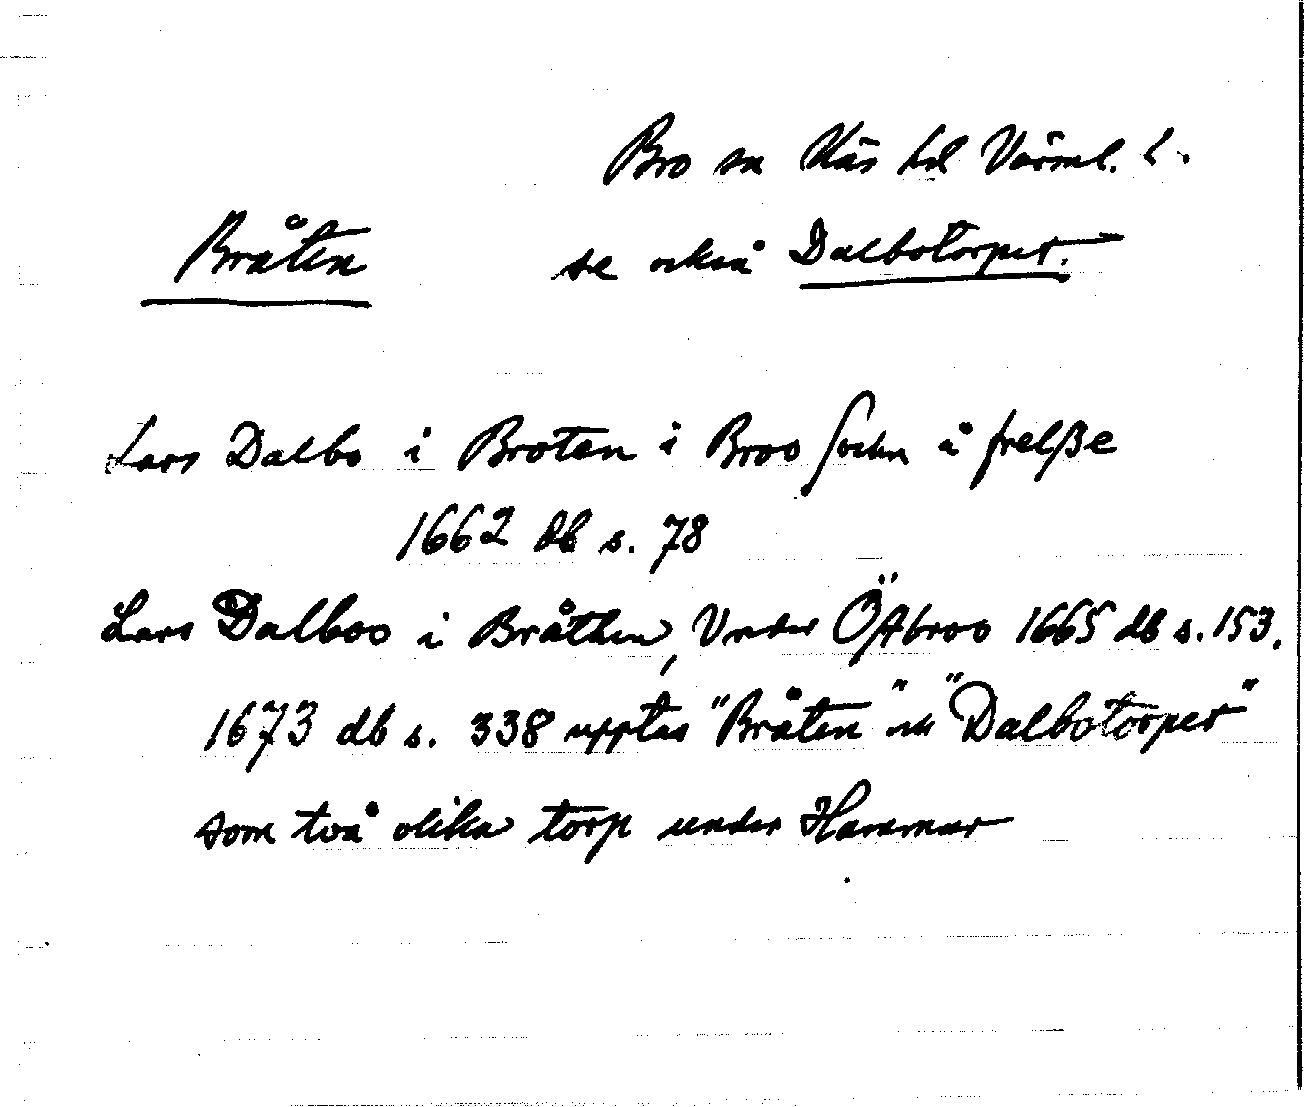 Bro sn Näs hd Värml. l.
Bråten se också Dalbotorpet.
Lars Dalbo i Broten i Broo Sochn å frelße
1662 db s. 78
Lars Dalboo i Bråthen, Vnder Östbroo 1665 db s. 153.
1673 db s. 338 upptas "Bråten" och "Dalbotorpet"
som två olika torp under Hammar